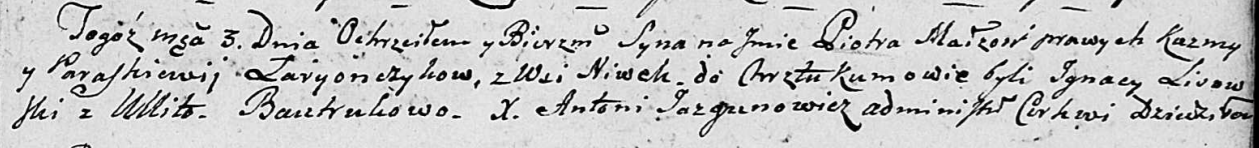 Togóż mca 3. Dnia Ochrzciłem y Bierzm Syna na Jmie Piotra Małżoń prawych Kazmy
y Paraskiewij Łaryonczykow, z Wsi Niwek. do Chrztu Kumowie byli Ignacy Lisow
ski z Ullito. Bautrukowo. X. Antoni Jazgunowicz administr Cerkwi